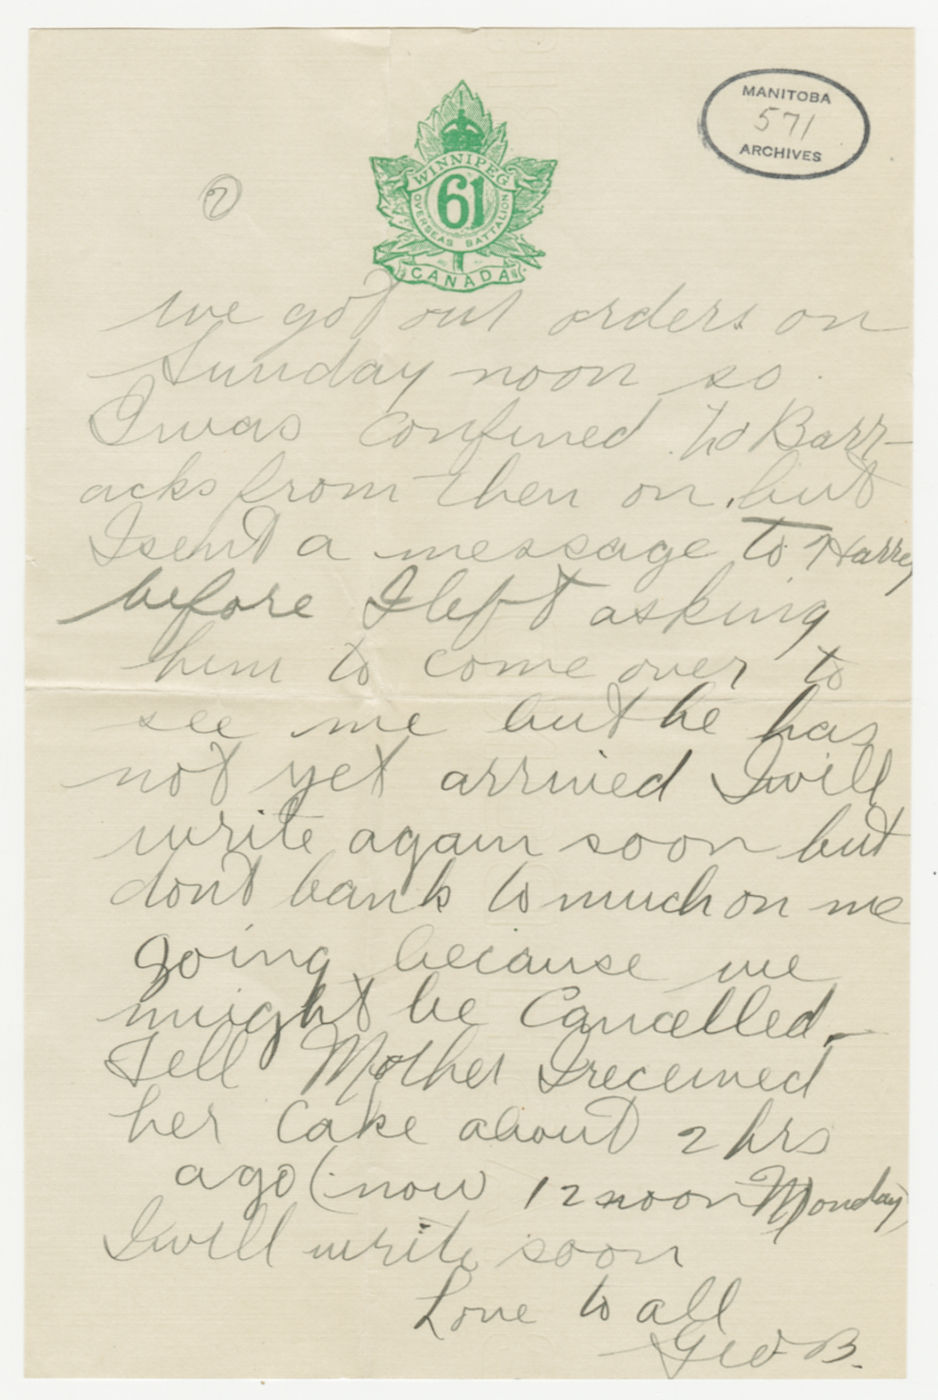 MANITOBA
571
ARCHIVES
2
WINNIPEG
61
OVERSEAS BATTALION
CANADA
we got out orders on
Sunday noon so
I was confined to Barr-
acks from then on. but
I sent a message to Harry
before I left asking
him to come over to
see me but he has
not yet arrived I will
write again soon but
dont bank to much on me
going because we
might be Cancelled.
Tell Mother I received
her Cake about 2 hrs
ago (now 12 noon Monday)
I will write soon
Love to all
Geo B.